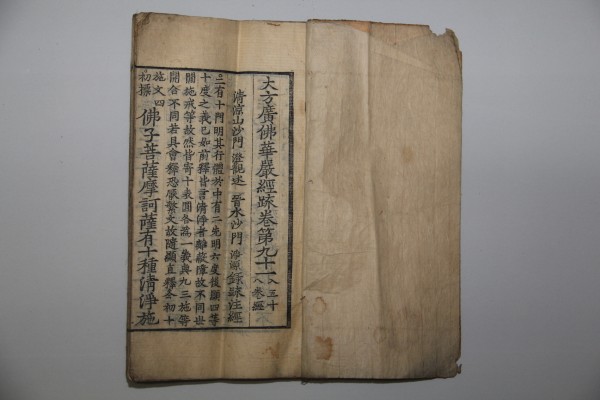 大方廣佛華嚴經疏卷第九十一 入三十八卷經
清涼山沙門 澄觀述 晉水沙門 淨源 錄疏注經
二有十門明其行體於中有二先明六度後顯四等
十度之義已如前釋皆言清淨者離蔽障故不同世
間施戒等故然皆寄十表圓各為一義與九三施等
開合不同若具會釋恐厭繁文故隨顯直釋今初十
施文四
初標 佛子菩薩摩訶薩有十種清淨施